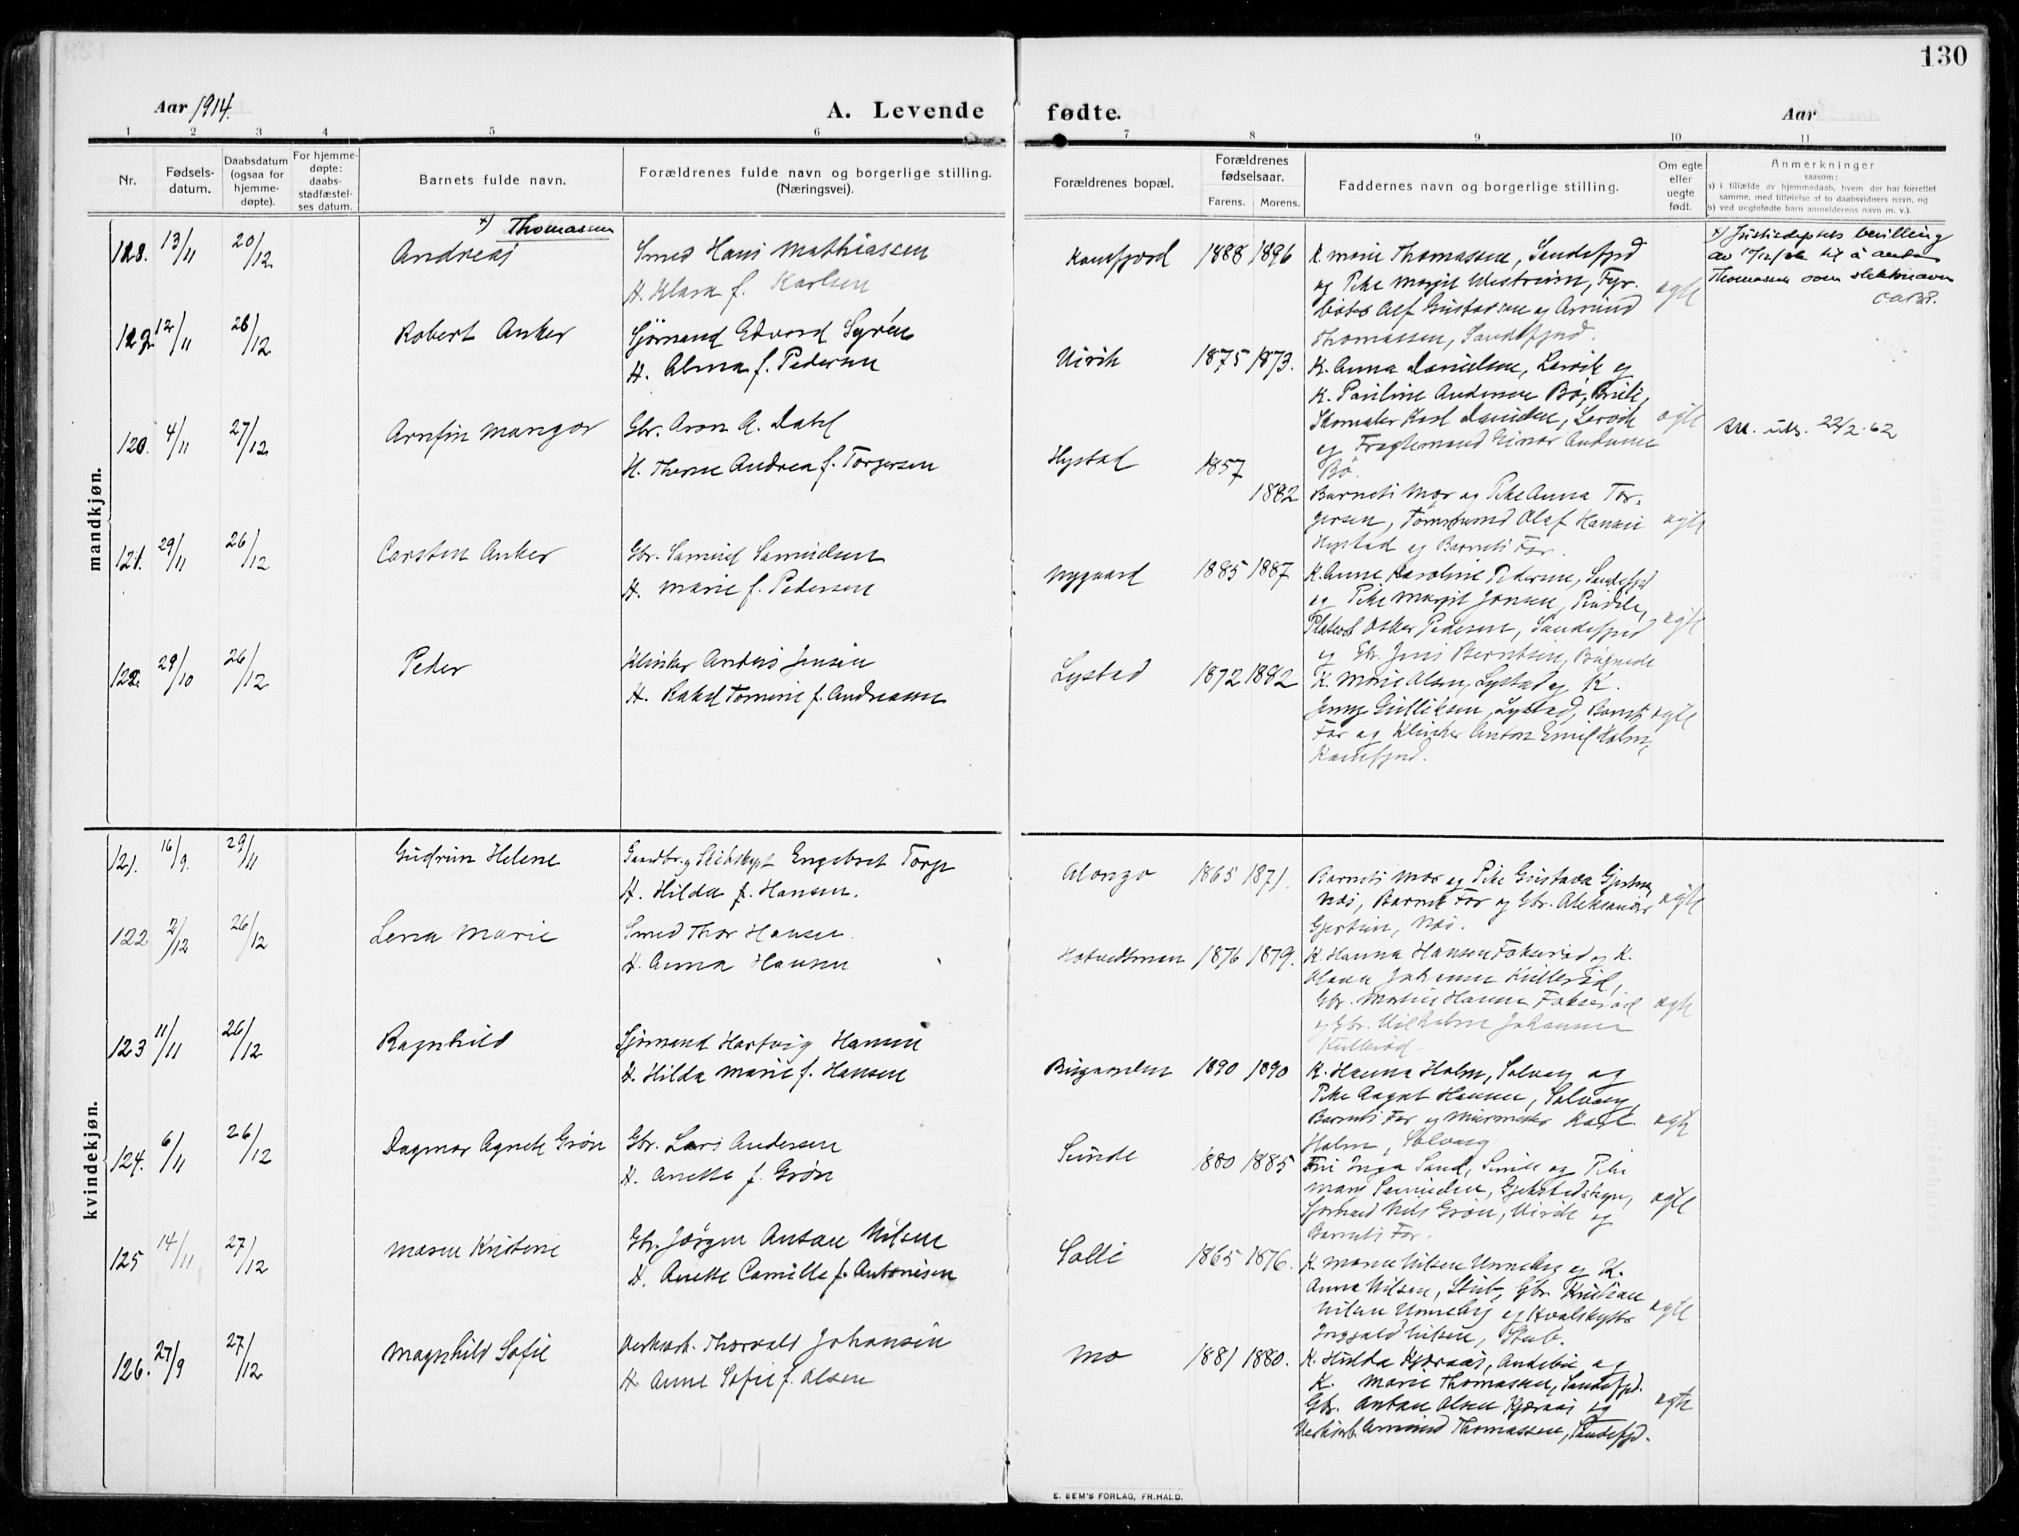 130
Aar 1914.
A. Levende fødte.
Aar
1 2 3 4 5 6 7 8 9 10 11
Nr.
Fødsels-
datum.
Daabsdatum
(ogsaa for
hjemme-
døpte).
For hjemme-
døpte:
daabs-
stadfæstel-
ses datum.
Barnets fulde navn.
Forældrenes fulde navn og borgerlige stilling.
(Næringsvei).
Forældrenes bopæl.
Forældrenes
fødselsaar.
Farens. Morens.
Faddernes navn og borgerlige stilling.
Om egte
eller
uegte
født.
Anmerkninger
saasom:
a) i tilfælde av hjemmedaab, hvem der har forrettet
samme, med tilføielse af to daabsvidners navn, og
b) ved uegtefødte barn anmelderens navn m. v.).
mandkjøn.
118. 13/11 20/12
x) Thomassen
Andreas
Smed Hans Mathiassen
H. Klara f. Karlsen
Kamfjord 1888 1896
K. Marie Thomassen, Sandefjrd
og Pike Margit
Alf Gustavsen og Amund
Thomassen, Sandefjrd.
egte
x) Justisdeptets bevilling
av til å anta
Thomassen som slektsnavn
119. 12/11 26/12
Robert Anker
Sjømand Edvard Syrén
H. Alma f. Pedersen
Virik 1875 1873.
K. Anna Danielsen, Lervik og
K. Pauline Andersen Bø,
Skomaker Karl Danielsen, Lervik
og Fragtemand Einar Andersen
Bø.
egte
120. 4/11 27/12
Arnfin Mangor
Gbr. Aron A. Dahl
H. Therese Andrea f. Torgersen
Hystad 1857
1882
Barnets Mor og Pike Anna Tor-
gersen, Tømmermd Olaf Hansen
Hystad og Barnets Far.
egte
Att. uts. 22/2.62
121. 29/11 26/12
Carsten Anker
Gbr. Samuel Samuelsen
H. Marie f. Pedersen
Nygaard 1885 1887
K. Anne Karoline Pedersen, Sandefjrd
og Pike Margit Jonsen, Pindsle,
Oskar Pedersen, Sandefjrd
og Gbr. Jens Berntsen,
egte
122. 29/10 26/12
Peder
Klinker Anders Jensen
H. Rakel Tomine f. Andreasen
Lystad 1872 1882
K. Marie Olsen, Lystad og K.
Jenny Gulliksen, Lystad, Barnets
Far og Klinker Anton Emil Holm,
Kamfjord.
egte
kvindekjøn.
121. 16/9. 29/11
Gudrun Helene
Gaardbr. og Skibskapt Engebret Torp
H. Hilda f. Hansen.
Alonzo 1865 1871.
Barnets Mor og Pike Gustava Gjertsen,
Næs, Barnets Far og Gbr. Aleksander
Gjertsen, Næs.
egte
122 2/12 26/12
Lena Marie
Smed Thor Hansen.
H. Anna Hansen
1876 1879.
K. Hanna Hansen Fokserød og K.
Olava Johansen Kullerød,
Gbr. Martin Hansen Fokserød
og Gbr. Vilhelm Johansen
Kullerød.
egte
123 11/11 26/12
Ragnhild
Sjømand Hartvig Hansen
H. Hilda Marie f. Hansen
1890 1890
K. Hanna Holm, Solvang og
Pike Aagot Hansen, Solvang,
Barnets Far og Murmester Karl
Holm, Solvang
egte
124. 6/11 26/12
Dagmar Agnete Grøn
Gbr. Lars Andersen
H. Anette f. Grøn
Sunde 1880 1885
Fru Inga Sand, Sunde og Pike
Marie Samuelsen, Gjekstadskogen,
Sjømand Nils Grøn, Virik og
Barnets Far.
egte
125 14/11 27/12
Maren Kristene
Gbr. Jørgen Antan Nilsen
H. Anette Camilla f. Antonisen
Solli 1865 1876.
K. Maren Nilsen Unneberg og K.
Anna Nilsen, Stub, Gbr. Kristian
Nilsen Unneberg og Hvalskytter
Ingvald Nilsen, Stub.
egte
126. 27/9 27/12
Magnhild Sofie
Verkarb. Thorvald Johansen
H. Anne Sofie f. Olsen
Mo 1881 1880.
K. Hulda Kjæraas, Andebu og
K. Marie Thomassen, Sandefjrd.
Gbr. Antan Olsen Kjæraas og
Verkarb. Amund Thomassen, Sandefjd.
egte
E. SEM'S FORLAG, FR.HALD.